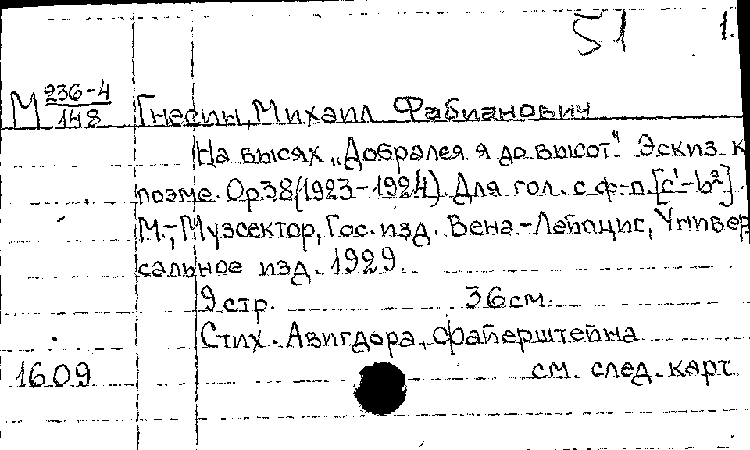 51 1.
М 236-4/148 Гнесин, Михаил Фабианович
На высях „Добрался я до высот“. Эскиз к
поэме. Ор38(1923-1924). Для гол. с ф-п.[c'-b²]
М.-, Музсектор, Гос. изд. Вена-Лейпциг, Универ
сальное изд. 1929.
9 стр. 36см.
Стих. Авигдора, Файерштейна
1609 см. след. карт.